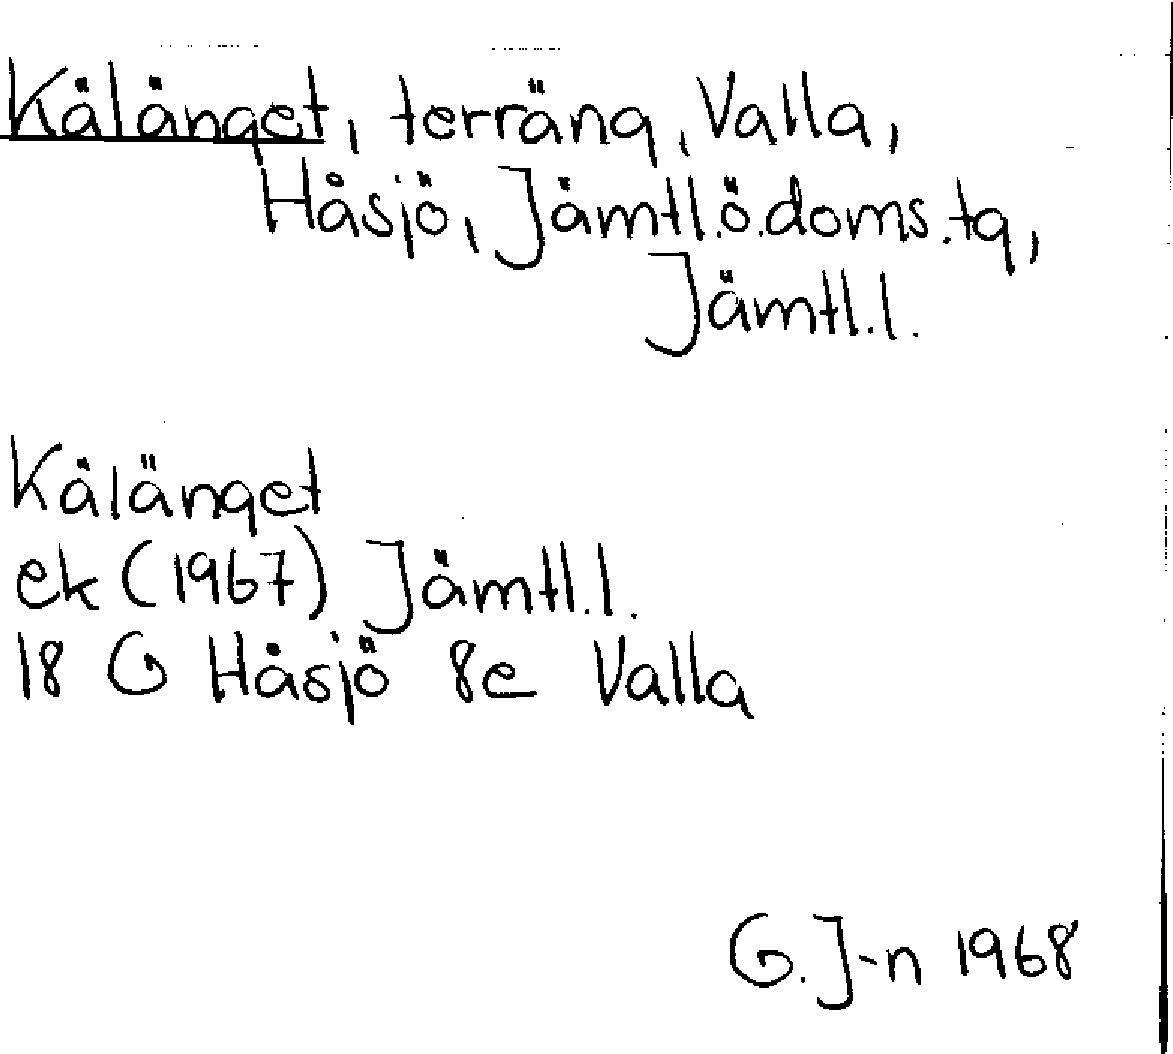 Kälänget, terräng, Valla,
Håsjö, Jämtl.ö.doms.tg,
Jämtl.l.
Kälänget
ek (1967) Jämtl.l.
18 G Håsjö 8e Valla
G. J-n 1968